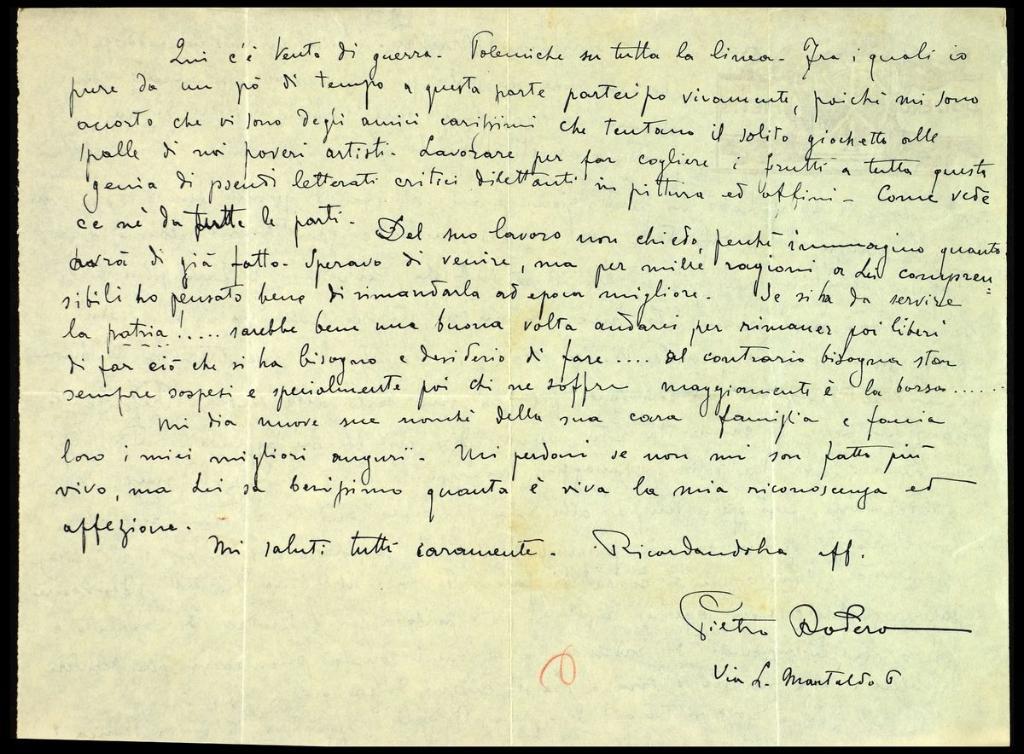 Qui c'è vento di guerra. Polemiche su tutta la linea. Fra i quali io
pure da un pò di tempo a questa parte partecipo vivamente, poichè mi sono
accorto che vi sono degli amici carissimi che tentano il solito giochetto alle
spalle di noi poveri artisti. Lavorare per far cogliere i frutti a tutta questa
genia di pseudi letterati critici dilettanti in pittura ed affini - Come vede
ce nè da tutte le parti.
Del suo lavoro non chiedo, perchè immagino quanto
avrà di già fatto. Speravo di venire, ma per mille ragioni a Lei compren=
sibili ho pensato bene di rimandarla ad epoca migliore. Se si ha da servire
la patria!..... sarebbe bene una buona volta andarci per rimaner poi liberi
di far ciò che si ha bisogno e desiderio di fare .... al contrario bisogna star
sempre sospesi e specialmente poi chi ne soffre maggiormente è la borsa......
Mi dia nuove sue nonchè della sua cara famiglia e faccia
loro i miei migliori augurï. Mi perdoni se non mi son fatto più
vivo, ma Lei sa benissimo quanta è viva la mia riconoscenza ed
affezione.
Mi saluti tutti caramente. Ricordandola aff.
Pietro Dodero
Via L. Montaldo 6